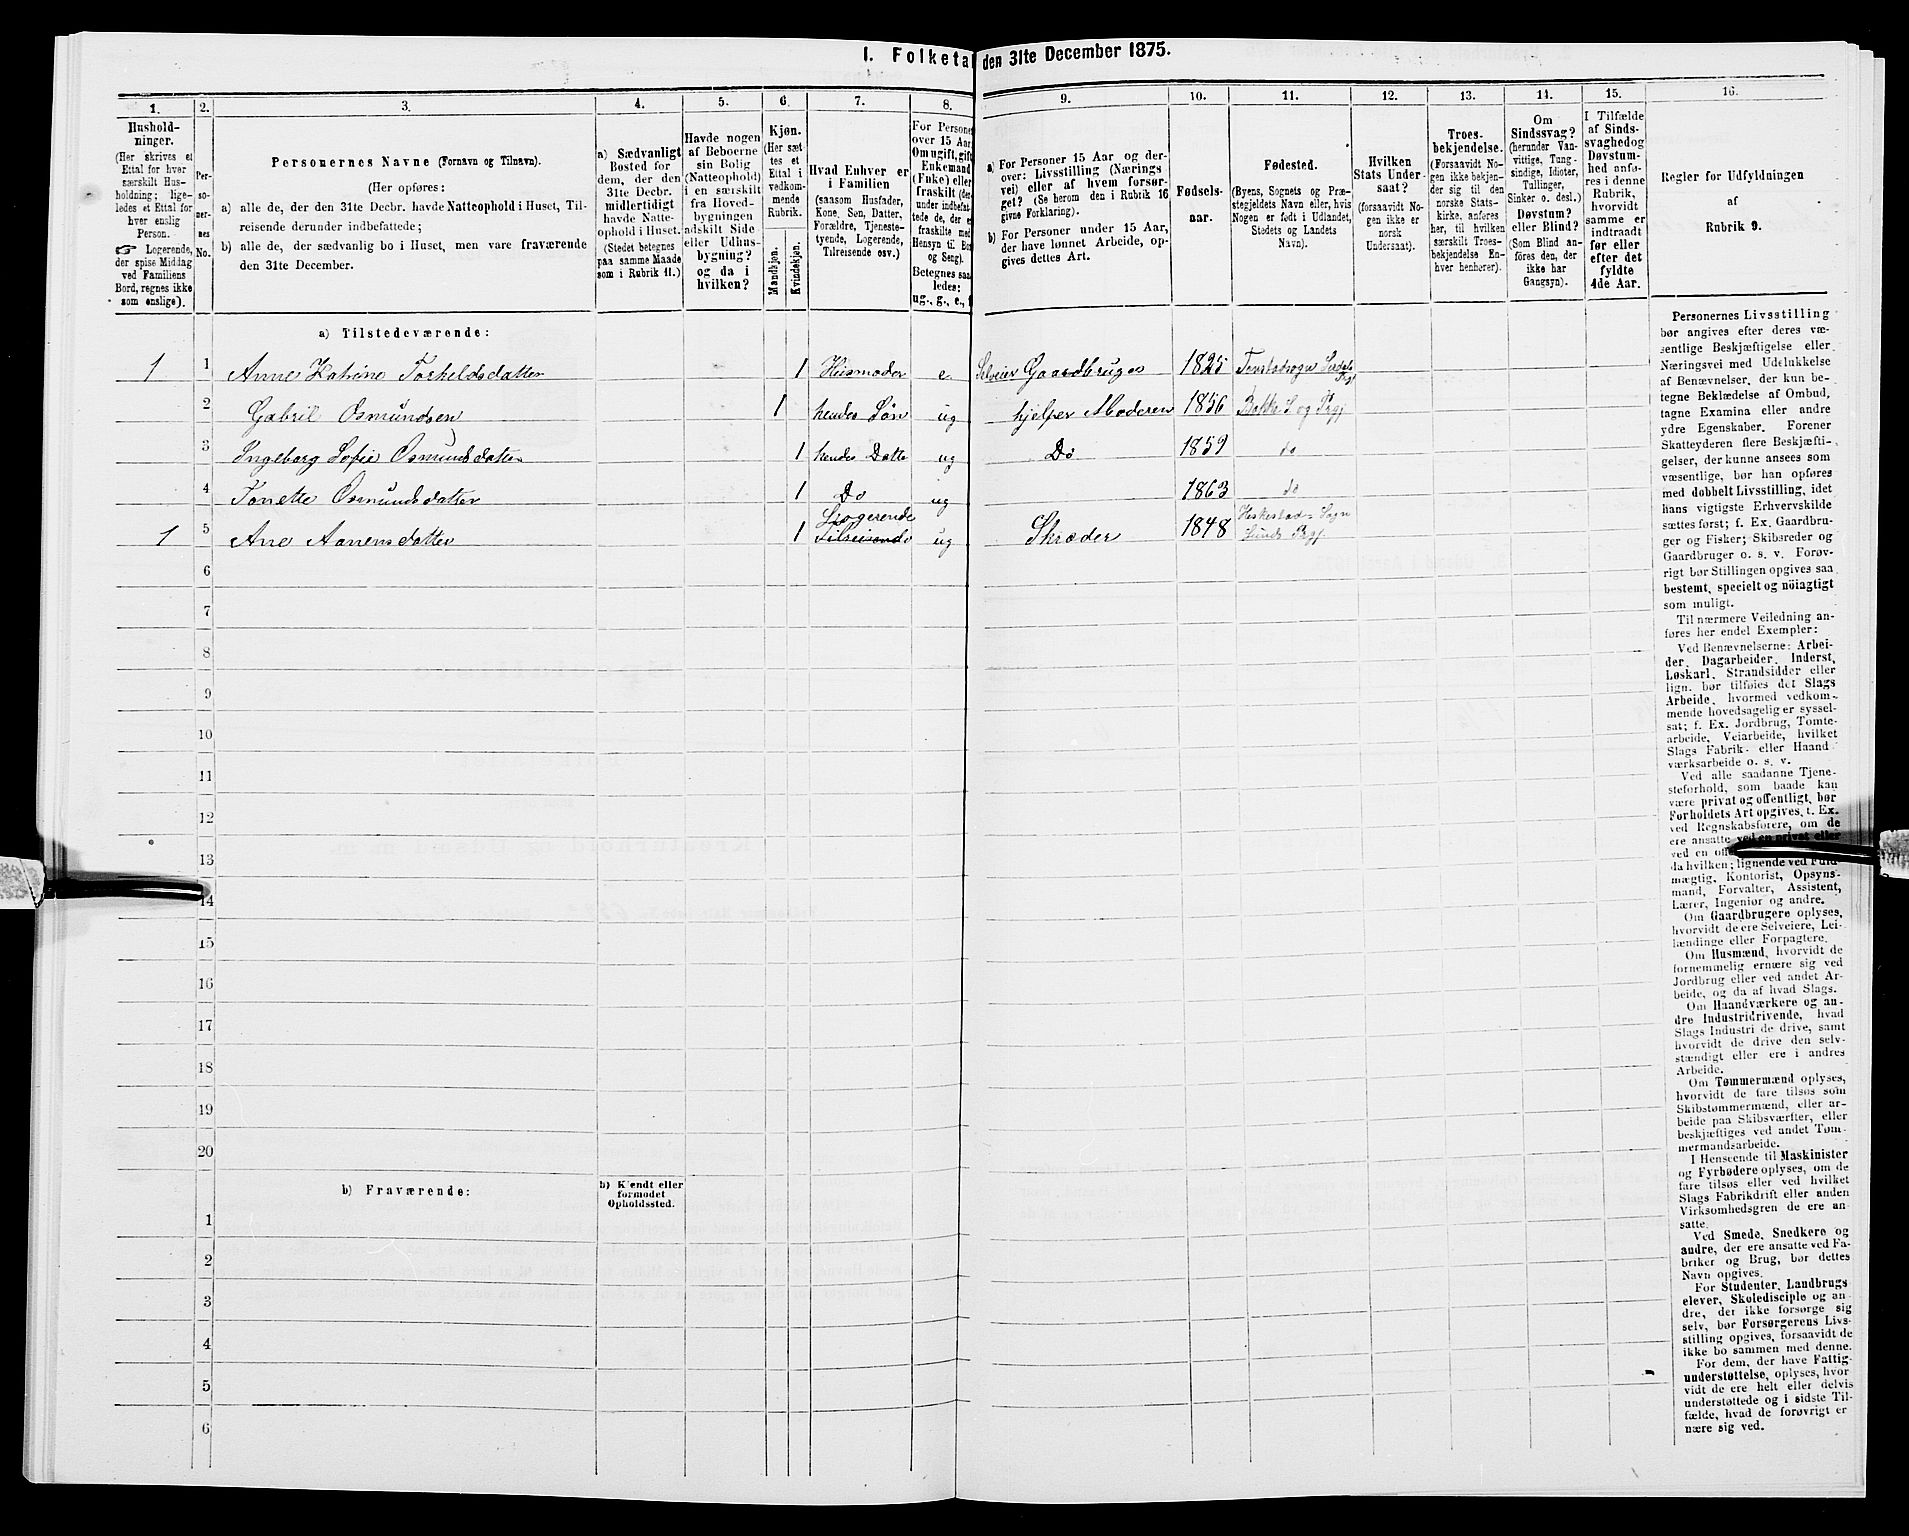 I. Folketal den 31te December 1875.
1. 2. 3. 4. 5. 6. 7. 8. 9. 10. 11. 12. 13. 14. 15. 16.
Hushold-
ninger.
(Her skrives et
Ettal for hver
særskilt Hus-
holdning; lige-
ledes et Ettal for
hver enslig
Person.
☞ Logerende,
der spise Middag
ved Familiens
Bord, regnes ikke
som enslige).
Per-
so-
ner-
nes
No.
Personernes Navne (Fornavn og Tilnavn).
(Her opføres:
a) alle de, der den 31te Decbr. havde Natteophold i Huset, Til-
reisende derunder indbefattede;
b) alle de, der sædvanlig bo i Huset, men vare fraværende
den 31te December.
a) Sædvanligt
Bosted for
dem, der den
31te Decbr.
midlertidigt
havde Natte-
ophold i Huset.
(Stedet betegnes
paa samme Maade
som i Rubrik 11.)
Havde nogen
af Beboerne
sin Bolig
(Natteophold)
i en særskilt
fra Hoved-
bygningen
adskilt Side
eller Udhus-
bygning?
og da i
hvilken?
Kjøn.
(Her sæt-
tes et
Ettal i
vedkom-
mende
Rubrik.
Mandkjøn.
Kvindekjøn.
Hvad Enhver er
i Familien
(saasom Husfader,
Kone, Søn, Datter,
Forældre, Tjeneste-
tyende, Logerende,
Tilreisende osv.)
For Personer
over 15 Aar:
Om ugift, gift,
Enkemand
(Enke) eller
fraskilt (der-
under indbefat-
tede de, der ere
fraskilte med
Hensyn til Bord
og Seng).
Betegnes saa-
ledes:
ug., g., e., f.
a) For Personer 15 Aar og der-
over: Livsstilling (Nærings-
vei) eller af hvem forsør-
get? (Se herom den i Rubrik 16
givne Forklaring).
b) For Personer under 15 Aar,
der have lønnet Arbeide, op-
gives dettes Art.
Fødsels-
aar.
Fødested.
(Byens, Sognets og Præ-
stegjeldets Navn eller, hvis
Nogen er født i Udlandet,
Stedets og Landets
Navn).
Hvilken
Stats Under-
saat?
(forsaavidt No-
gen ikke er
norsk
Undersaat).
Troes-
bekjendelse.
(Forsaavidt No-
gen ikke bekjen-
der sig til den
norske Stats-
kirke, anføres
her, til hvilken
særskilt Troes-
bekjendelse En-
hver henhører).
Om
Sindssvag?
(herunder Van-
vittige, Tung-
sindige, Idioter,
Tullinger,
Sinker o. desl.)
Døvstum?
eller Blind?
(Som Blind an-
føres den, der
ikke har
Gangsyn).
I Tilfælde
af Sinds-
svaghed og
Døvstum-
hed anfø-
res i denne
Rubrik,
hvorvidt
samme er
indtraadt
før eller
efter det
fyldte
4de Aar.
Regler for Udfyldningen
af
Rubrik 9.
a) Tilstedeværende:
1 1 Anne Katrine Torkeldsdatter 1 Husmoder e. Selveier Gaardbruger 1825
2 Gabriel Osmundsen 1 hendes Søn ug hjelper Moderen 1856 Bakke S og Prgj
3 Ingeborg Sofie Osmundsdatter 1 hendes Datter ug Do 1859 do
4 Tonette Osmundsdatter 1 Do ug 1863 do
1 5 Ane Aanensdatter 1 Logerende Tilreisende ug Skræder 1848 Heskestad Sogn Lunds Prgj.
6
7
8
9
10
11
12
13
14
15
16
17
18
19
20
b) Fraværende:
b) Kjendt eller
formodet
Opholdssted.
1
2
3
4
5
6
Personernes Livsstilling
bør angives efter deres væ-
sentlige Beskjæftigelse eller
Næringsvei med Udelukkelse
af Benævnelser, der kun be-
tegne Beklædelse af Ombud,
tagne Examina eller andre
ydre Egenskaber. Forener
Skatteyderen flere Beskjæfti-
gelser, der kunne ansees som
væsentlige, bør han opføres
med dobbelt Livsstilling, idet
hans vigtigste Erhvervskilde
sættes først; f. Ex. Gaardbru-
ger og Fisker; Skibsreder og
Gaardbruger o. s. v. Forøv-
rigt bør Stillingen opgives saa
bestemt, specielt og nöiagtigt
som muligt.
Til nærmere Veiledning an-
føres her endel Exempler:
Ved Benævnelserne: Arbei-
der, Dagarbeider, Inderst,
Løskarl, Strandsidder eller
lign. bør tilføies det Slags
Arbeide, hvormed vedkom-
mende hovedsagelig er syssel-
sat; f. Ex. Jordbrug, Tomte-
arbeide, Veiarbeide, hvilket
Slags Fabrik- eller Haand
værksarbeide o. s. v.
Ved alle saadanne Tjene-
steforhold, som baade kan
være privat og offentligt, bør
Forholdets Art opgives, t. Ex.
ved Regnskabsførere, om de
ere ansatte ved en privat eller
ved en
da hvilken; lignende ved Fuld-
mægtig, Kontorist, Opsyns-
mand, Forvalter, Assistent,
Lærer, Ingeniør og andre.
Om Gaardbrugere oplyses,
hvorvidt de ere Selveiere, Lei-
lændinge eller Forpagtere.
Om Husmænd, hvorvidt de
fornemmelig ernære sig ved
Jordbrug eller ved andet Ar-
beide, og da af hvad Slags.
Om Haandværkere og an-
dre Industridrivende, hvad
Slags Industri de drive, samt
hvorvidt de drive den selv-
stændigt eller ere i andres
Arbeide.
Om Tømmermænd oplyses,
hvorvidt de fare tilsøs som
Skibstømmermænd, eller ar-
beide paa Skibsværfter, eller
beskjæftiges ved andet Tøm-
mermandsarbeide.
I Henseende til Maskinister
og Fyrbødere oplyses, om de
fare tilsøs eller ved hvilket
Slags Fabrikdrift eller anden
Virksomhedsgren de ere an-
satte.
Ved Smede, Snedkere og
andre, der ere ansatte ved Fa-
briker og Brug, bør dettes
Navn opgives.
For Studenter, Landbrugs
elever, Skoledisciple og an-
dre, der ikke forsørge sig
selv, bør Forsørgerens Livs-
stilling opgives, forsaavidt de
ikke bo sammen med denne.
For dem, der have Fattig-
understøttelse, oplyses, hvor-
vidt de ere helt eller delvis
understøttede og i sidste Til-
fælde, hvad de forøvrigt er
nære sig ved.